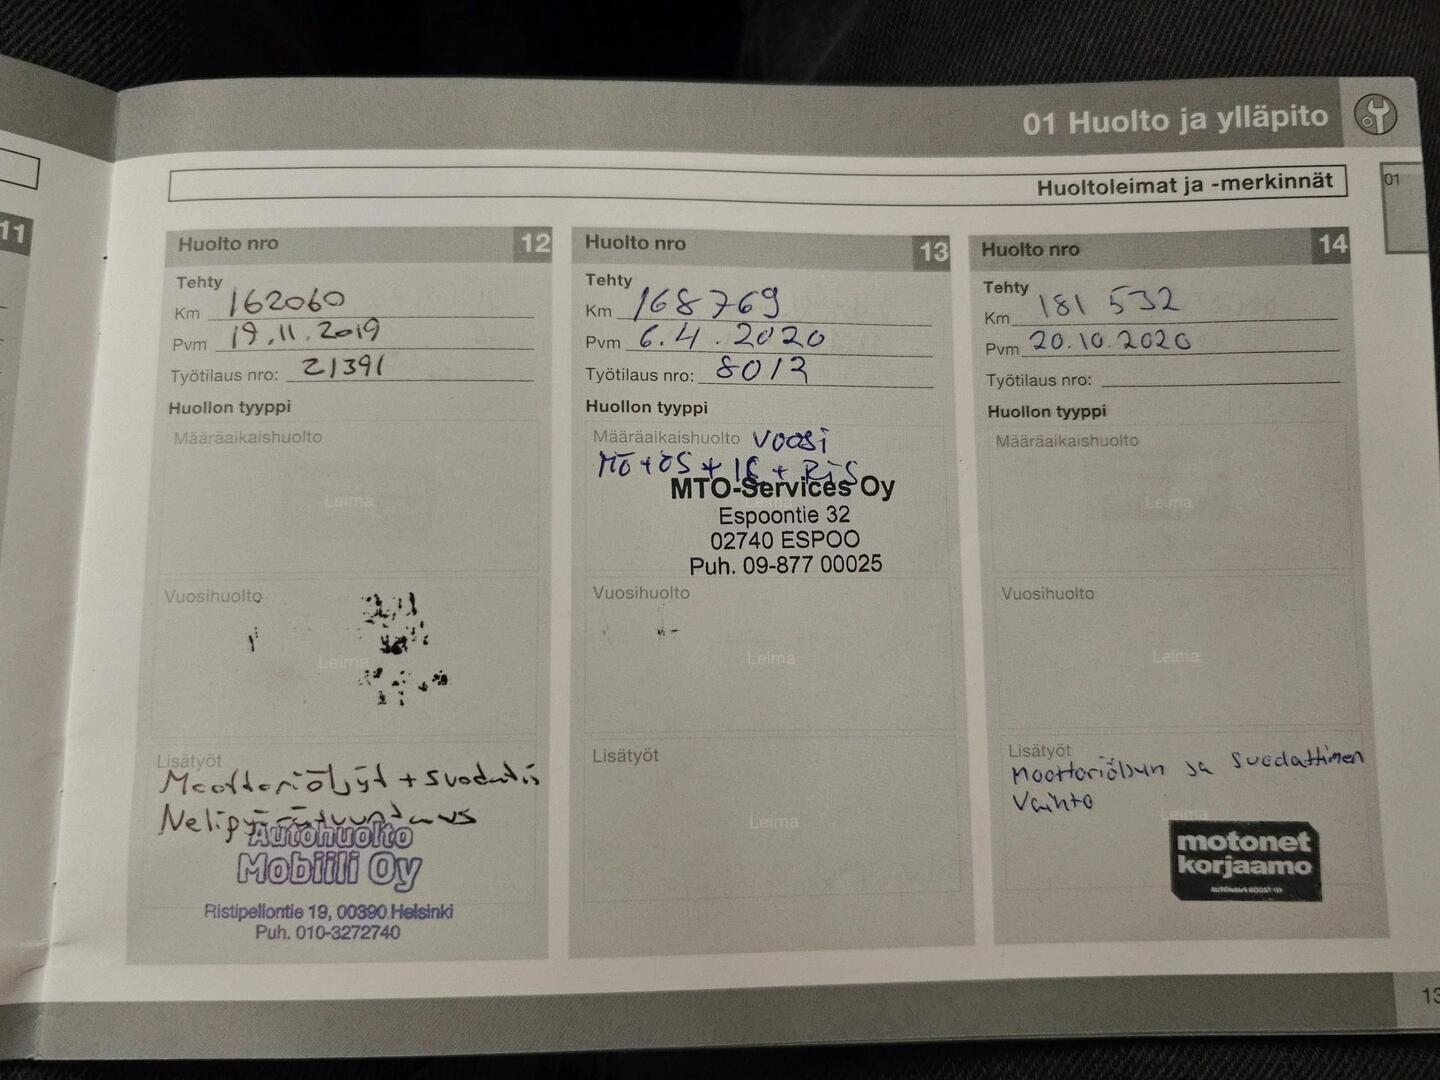 01 Huolto ja ylläpito
Huoltoleimat ja -merkinnät
01
11
Huolto nro 12
Tehty
Km 162060
Pvm 19.11.2019
Työtilaus nro: 21391
Huollon tyyppi
Määräaikaishuolto
Leima
Vuosihuolto
Leima
Lisätyöt
Moottoriöljyt + suodatis
Autohuolto
Mobiili Oy
Ristipellontie 19, 00390 Helsinki
Puh. 010-3272740
Huolto nro 13
Tehty
Km 168769
Pvm 6.4.2020
Työtilaus nro: 8012
Huollon tyyppi
Määräaikaishuolto Vuosi
MÖ + ÖS + IS + RiS
MTO-Services Oy
Espoontie 32
02740 ESPOO
Puh. 09-877 00025
Vuosihuolto
Leima
Lisätyöt
Leima
Huolto nro 14
Tehty
Km 181 532
Pvm 20.10.2020
Työtilaus nro:
Huollon tyyppi
Määräaikaishuolto
Leima
Vuosihuolto
Leima
Lisätyöt
Moottoriöljyn ja suodattimen
Vaihto
Leima
motonet
korjaamo
13